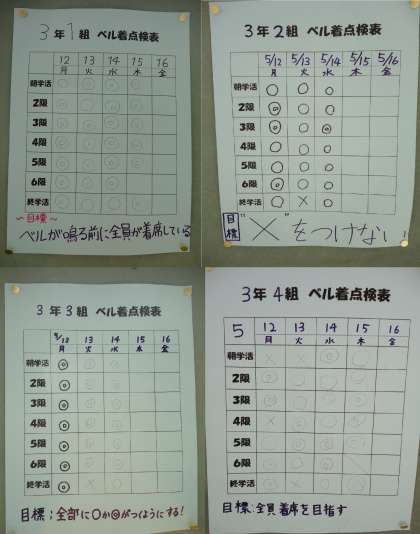 3年1組 ベル着点検表
12 13 14 15 16
月 火 水 木 金
朝学活 ◎ ◎ ◎ ◎
2限 ◎ ◎ ◎ ◎
3限 ◎ ◎ ◎ ◎
4限 ◎ ◎ ◎ ◎
5限 ◎ ◎ ◎ ◎
6限 ◎ ◎ ◎ ◎
終学活
~目標~
ベルが鳴る前に全員が着席している
3年2組 ベル着点検表
5/12 5/13 5/14 5/15 5/16
月 火 水 木 金
朝学活 ○ ○ ○
2限 ◎ ○ ○
3限 ◎ ○ ◎
4限 ○ ○ ○
5限 ○ ○ ○
6限 ◎ ○ ○
終学活 ○ × ○
目標 "×"をつけない
3年3組 ベル着点検表
5/12 13 14 15 16
月 火 水 木 金
朝学活 ◎
2限 ◎
3限 ◎
4限 ◎
5限 ◎
6限 ◎
終学活 ◎ ×
目標:全部に○か◎がつくようにする!
3年4組 ベル着点検表
5 12 13 14 15 16
月 火 水 木 金
朝学活 ×
2限
3限
4限 ×
5限
6限
終学活
目標:全員着席を目指す